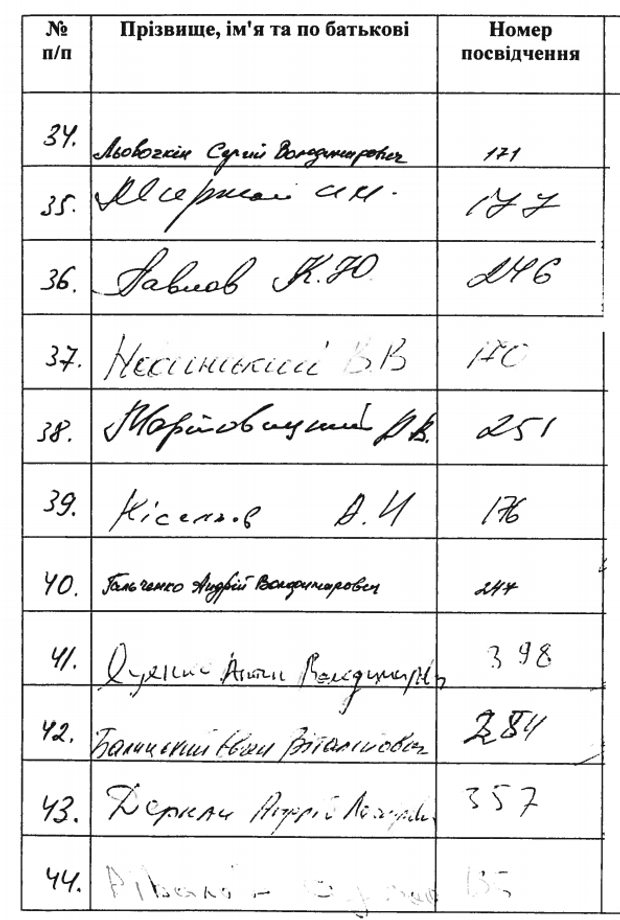 № п/п Прізвище, ім'я та по батькові Номер посвідчення
34. Льовочкін Сергій Володимирович 171
35. 177
36. Павлов К.Ю. 246
37. В.В 170
38. Мартовицький А.В. 251
39. Кісельов А.И 176
40. Гальченко Андрій Володимирович 247
41. Яценко Антон Володимирович 398
42. Балицький Євген Віталійович 284
43. Деркач Андрій 357
44.